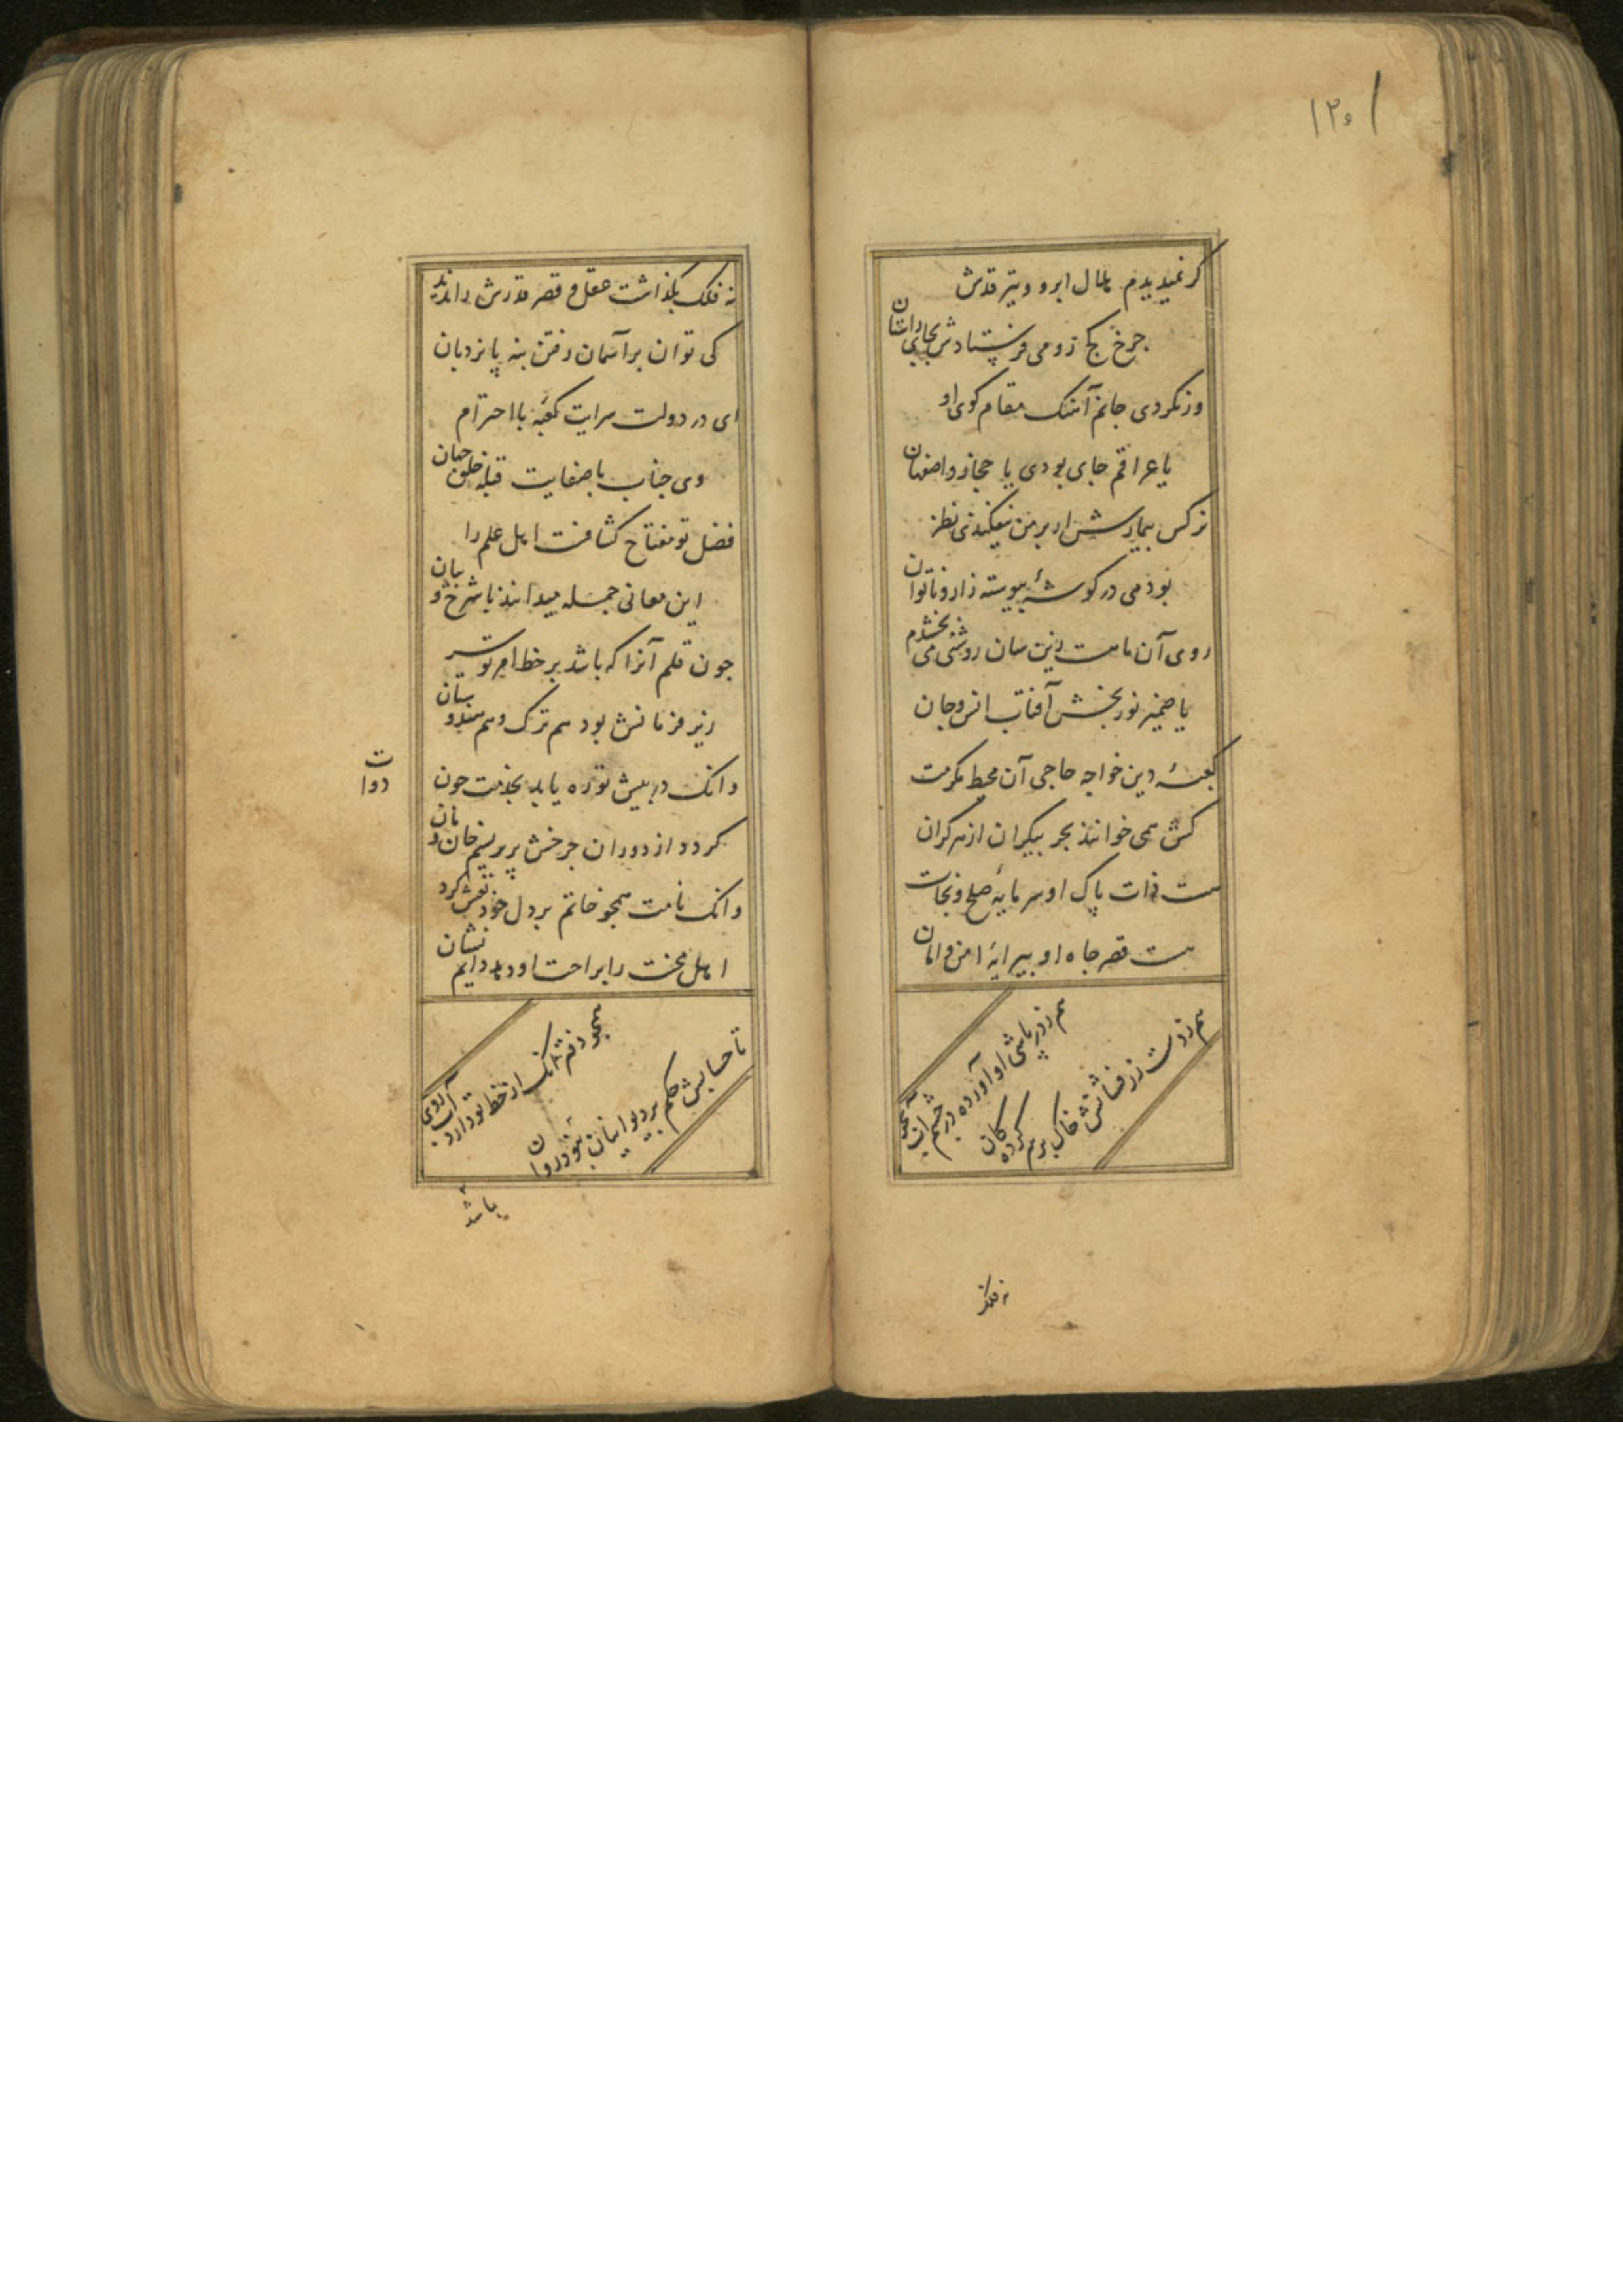 ۱۲۰
گر نمیدیدم هلال ابرو و تیر قدش
چرخ کج رو می فرستادش بجای داستان
ور نکردی جانم آهنک مقام کوی او
یا عراقم جای بودی یا حجاز و اصفهان
نرکس بیمارش ار بر من نیفکندی نظر
بودمی در کوشهٔ پیوسته زار و ناتوان
روی آن ماهست زین سان روشنی می بخشدم
یا ضمیر نور بخش آفتاب انس و جان
کعبهٔ دین خواجه حاجی آن محیط مکرمت
کش همی خوانند بحر بیکران از هر کران
هست ذات پاک او سرمایهٔ صلح و نجات
هست قصر جاه او پیرایهٔ امن و امان
هم ز در پاشی او آورده در چشم آب
هم ز دست زر فشانش خاک بر سر کرده کان
نه فلک
نه فلک بگذاشت عقل و قصر قدرش را ندید
کی توان بر آسمان رفتن بنه پا نردبان
ای در دولت سرایت کعبهٔ با احترام
وی جناب با صفایت قبلهٔ خلق جهان
فضل تو مفتاح کشافست اهل علم را
این معانی جمله میدانند با شرح و بیان
چون قلم آنرا که باشد بر خط امر تو سر
زیر فرمانش بود هم ترک و هم هندوستان
وانک در پیش تو ره یابد بخدمت چون
دوات
کردد از دوران چرخش پر ز سیم خان و مان
وانک نامت همچو خاتم بر دل خود نقش کرد
اهل محنت را براحت او دهد دایم نشان
همچو دفتر آنک از خط تو دارد آب روی
تا حسابش حکم بر دیوانیان نبود روان
باشد